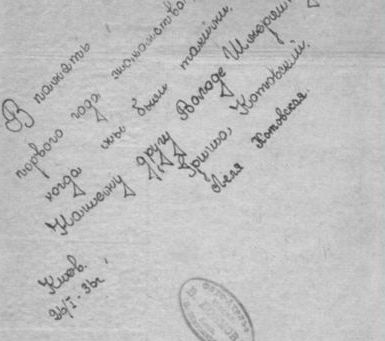 В память
первого года знакомства
когда мы были такими.
Нашему другу Володе
Гриша Котовский.
Леля Котовская.
Киев.
26/I - 36г